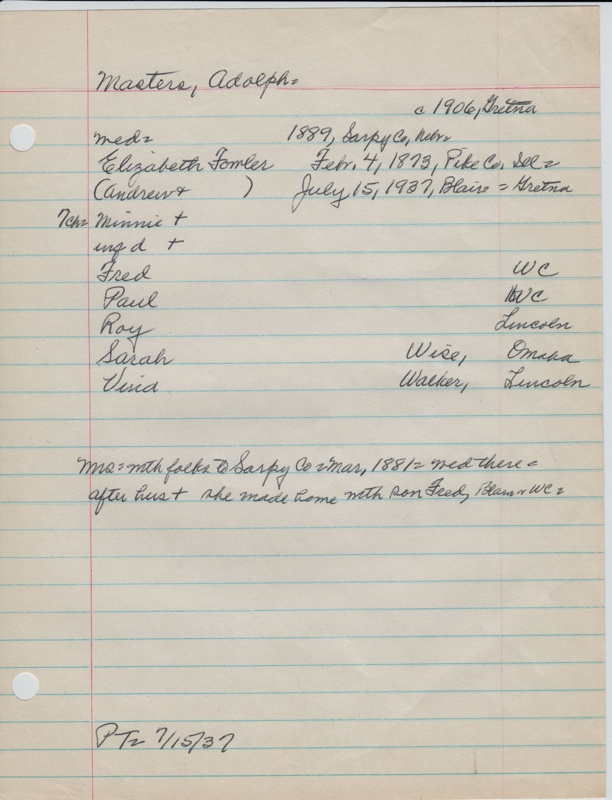 Masters, Adolph=
c 1906, Gretna
med= 1889, Sarpy Co, Nebr=
Elizabeth Fowler Febr. 4, 1873, Pike Co. Ill=
(Andrew+ ) July 15, 1937, Blair = Gretna
7ch= Minnie +
inf d +
Fred WC
Paul WC
Roy Lincoln
Sarah Wise, Omaha
Walker, Lincoln
Mrs= with folks to Sarpy Co = Mar, 1881= wed there=
after hus + she made home with son Fred, Blair + WC=
PT= 7/15/37